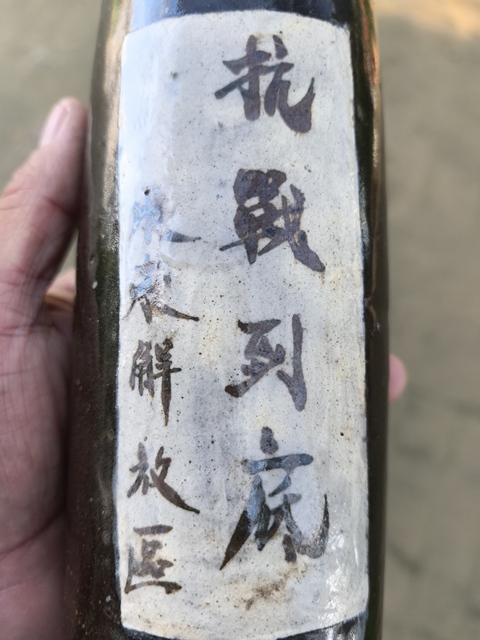 抗戰到底
解放區